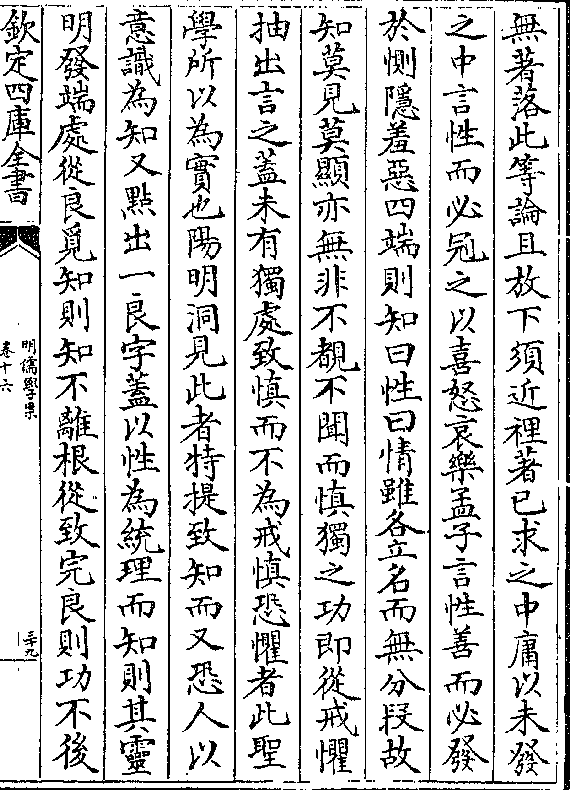 無著落此等論且放下須近裡著己求之中庸以未發
之中言性而必冠之以喜怒哀樂孟子言性善而必發
於惻隱羞惡四端則知曰性曰情雖各立名而無分段故
知莫見莫顯亦無非不覩不聞而慎獨之功即從戒懼
抽出言之蓋未有獨處致慎而不為戒慎恐懼者此聖
學所以為實也陽明洞見此者特提致知而又恐人以
意識為知又點出一良字蓋以性為統理而知則其靈
明發端處從良覓知則知不離根從致完良則功不後
欽定四庫全書
明儒學案
卷十六
三十九